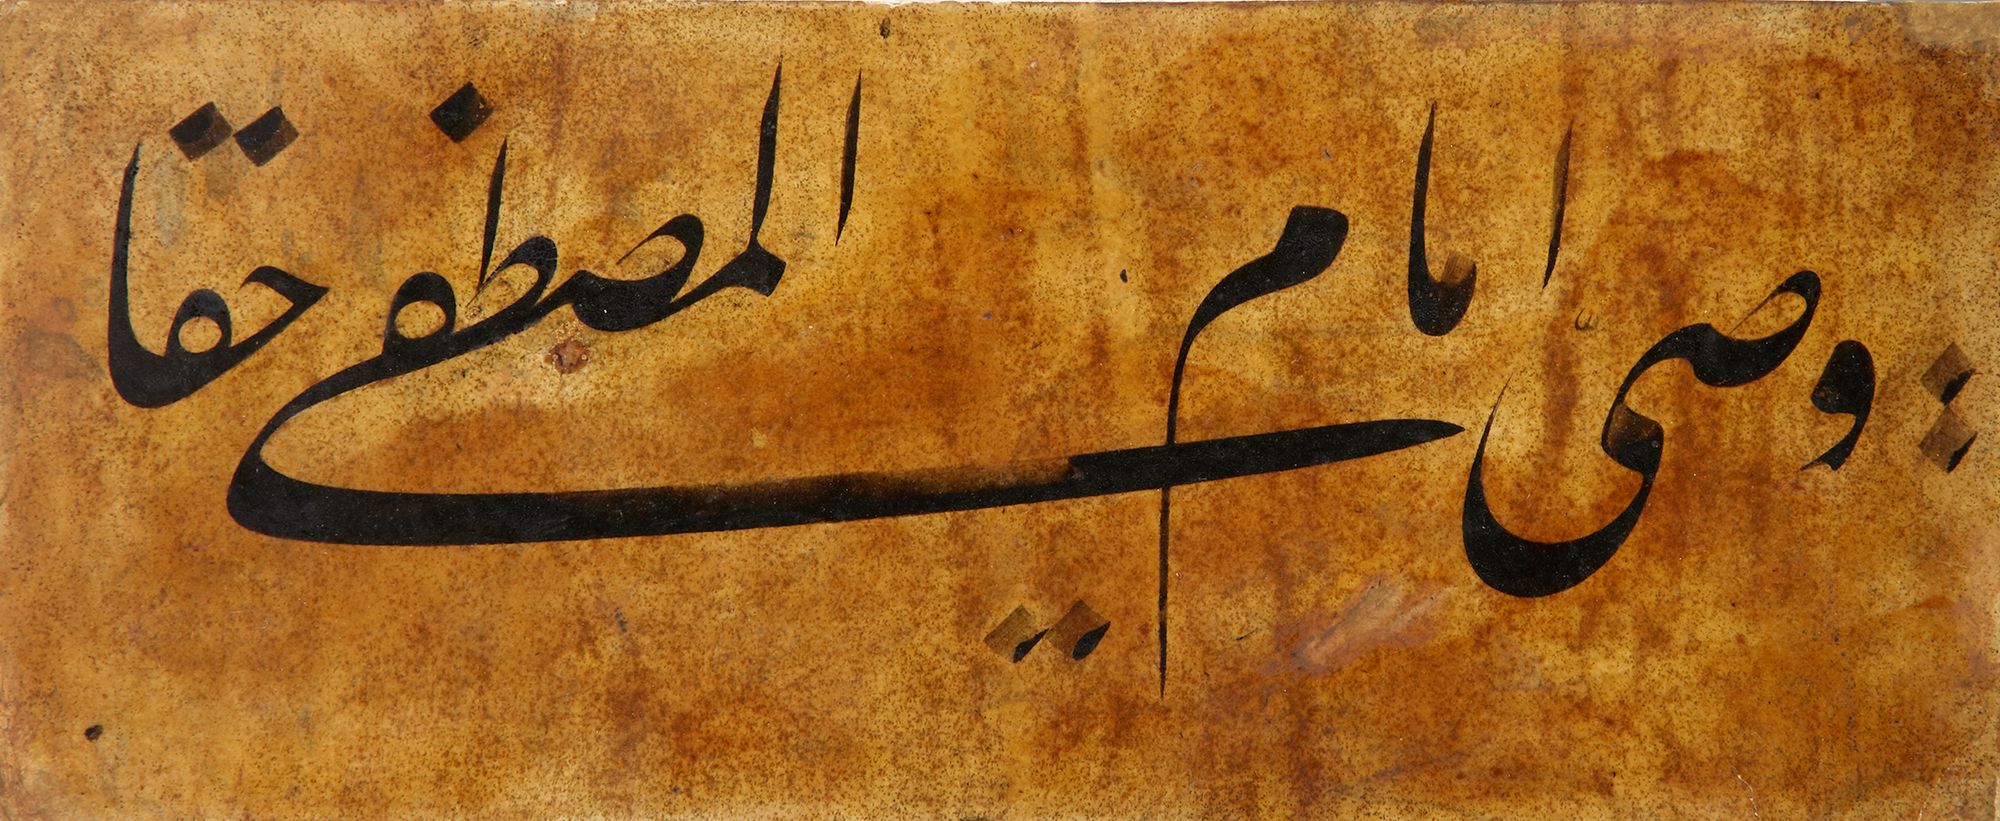 وصی امام المصطفی حقا